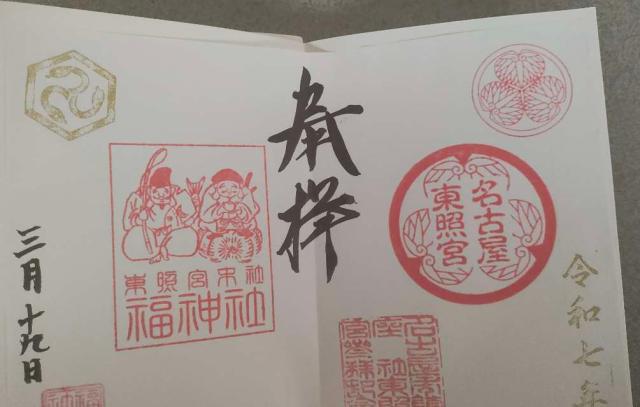 令和七年
名古屋
東照宮
奉拝
東照宮末社
福神社
三月十九日